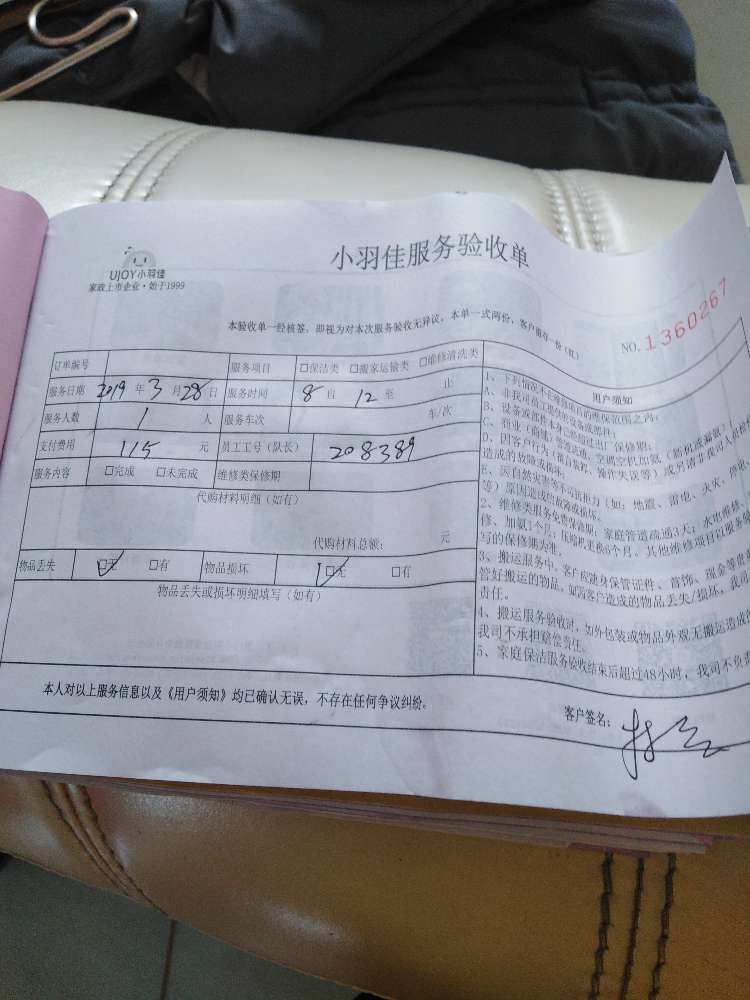 小羽佳服务验收单
UJOY小羽佳
家政上市企业·始于1999
本验收单一经核签，即视为对本次服务验收无异议，本单一式两份，客户留存一份（红）
NO. 1360267
订单编号 服务项目 □保洁类 □搬家运输类 □维修清洗类
服务日期 2019 年 3 月 28 日 服务时间 8 自 12 至 止
服务人数 1 人 服务车次 车/次
支付费用 115 元 员工工号（队长） 208389
服务内容 □完成 □未完成 维修类保修期
代购材料明细（如有）
代购材料总额： 元
物品丢失 □无 □有 物品损坏 □无 □有
物品丢失或损坏明细填写（如有）
用户须知
1、下列情况不在维修项目的维保范围之内：
A、非我司员工提供的设备或部件；
B、设备或部件本身已经超过出厂保修期；
造成的故障或损坏；
等）原因造成的故障或损坏。
2、维修类服务免费保修期：家庭管道疏通3天；水电维修、
修、加氟1个月；压缩机更换6个月。其他维修项目以服务验
写的保修期为准。
3、搬运服务中，客户应随身保管证件、首饰、现金等贵
管好搬运的物品，如因客户造成的物品丢失/损坏，我
责任。
4、搬运服务验收时，如外包装或物品外观无搬运造成的
我司不承担赔偿责任。
5、家庭保洁服务验收结束后超过48小时，我司不负责
本人对以上服务信息以及《用户须知》均已确认无误，不存在任何争议纠纷。
客户签名：